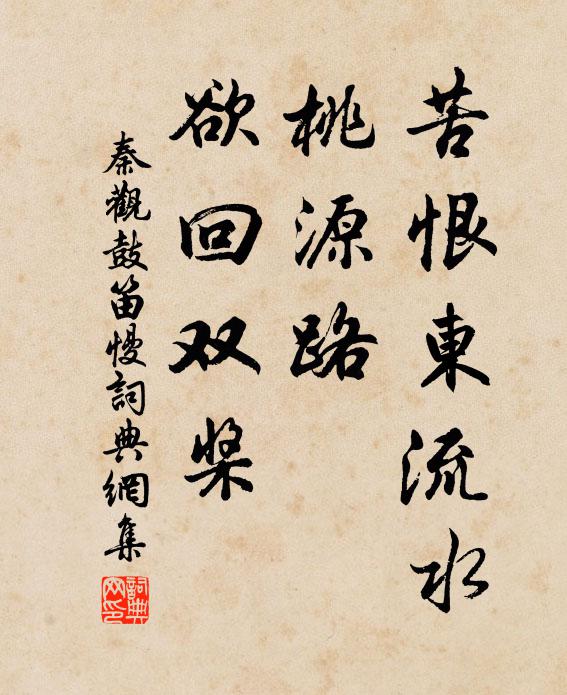 苦恨東流水
桃源路
欲回双槳
秦觀鼓笛慢詞典網集
詞典网印